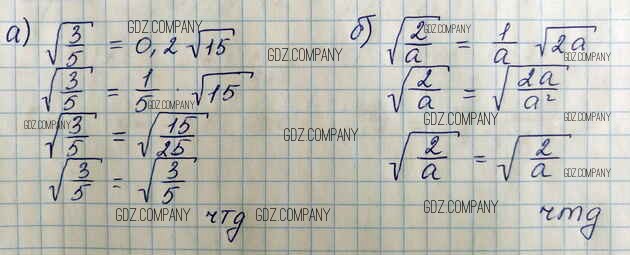 а) √(3/5) = 0,2 √15
√(3/5) = 1/5 · √15
√(3/5) = √(15/25)
√(3/5) = √(3/5)
чтд
б) √(2/a) = 1/a √2a
√(2/a) = √(2a/a²)
√(2/a) = √(2/a)
чтд
GDZ.COMPANY
GDZ.COMPANY
GDZ.COMPANY
GDZ.COMPANY
GDZ.COMPANY
GDZ.COMPANY
GDZ.COMPANY
GDZ.COMPANY
GDZ.COMPANY
GDZ.COMPANY
GDZ.COMPANY
GDZ.COMPANY
GDZ.COMPANY